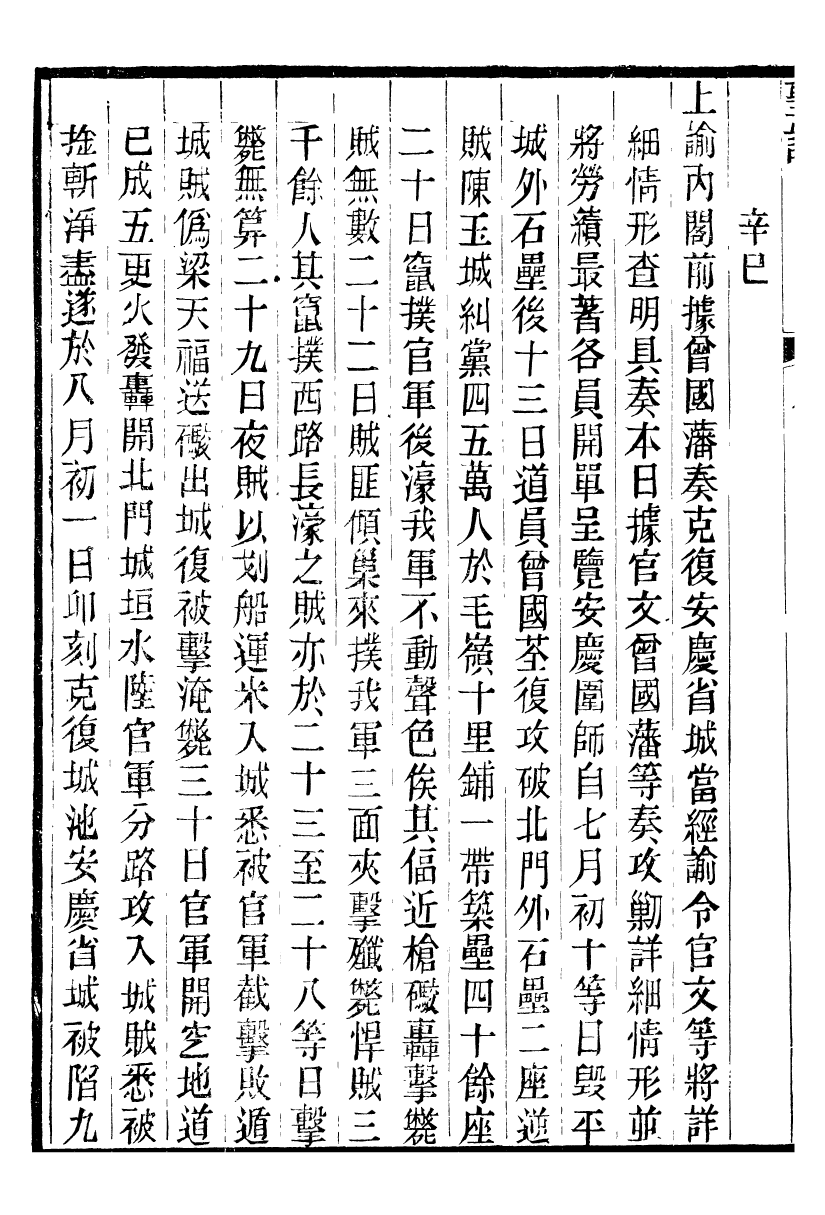 辛巳
上諭內閣前據曾國藩奏克復安慶省城當經諭令官文等將詳
細情形查明具奏本日據官文曾國藩等奏攻勦詳細情形並
將勞績最著各員開單呈覽安慶圍師自七月初十等日毀平
城外石壘後十三日道員曾國荃復攻破北門外石壘二座逆
賊陳玉城糾黨四五萬人於毛嶺十里鋪一帶築壘四十餘座
二十日竄撲官軍後濠我軍不動聲色俟其偪近槍礮轟擊斃
賊無數二十二日賊匪傾巢來撲我軍三面夾擊殲斃悍賊三
千餘人其竄撲西路長濠之賊亦於二十三至二十八等日擊
斃無算二十九日夜賊以划船運米入城悉被官軍截擊敗遁
城賊僞梁天福送礮出城復被擊淹斃三十日官軍開空地道
已成五更火發轟開北門城垣水陸官軍分路攻入城賊悉被
捦斬淨盡遂於八月初一日卯刻克復城池安慶省城被陷九